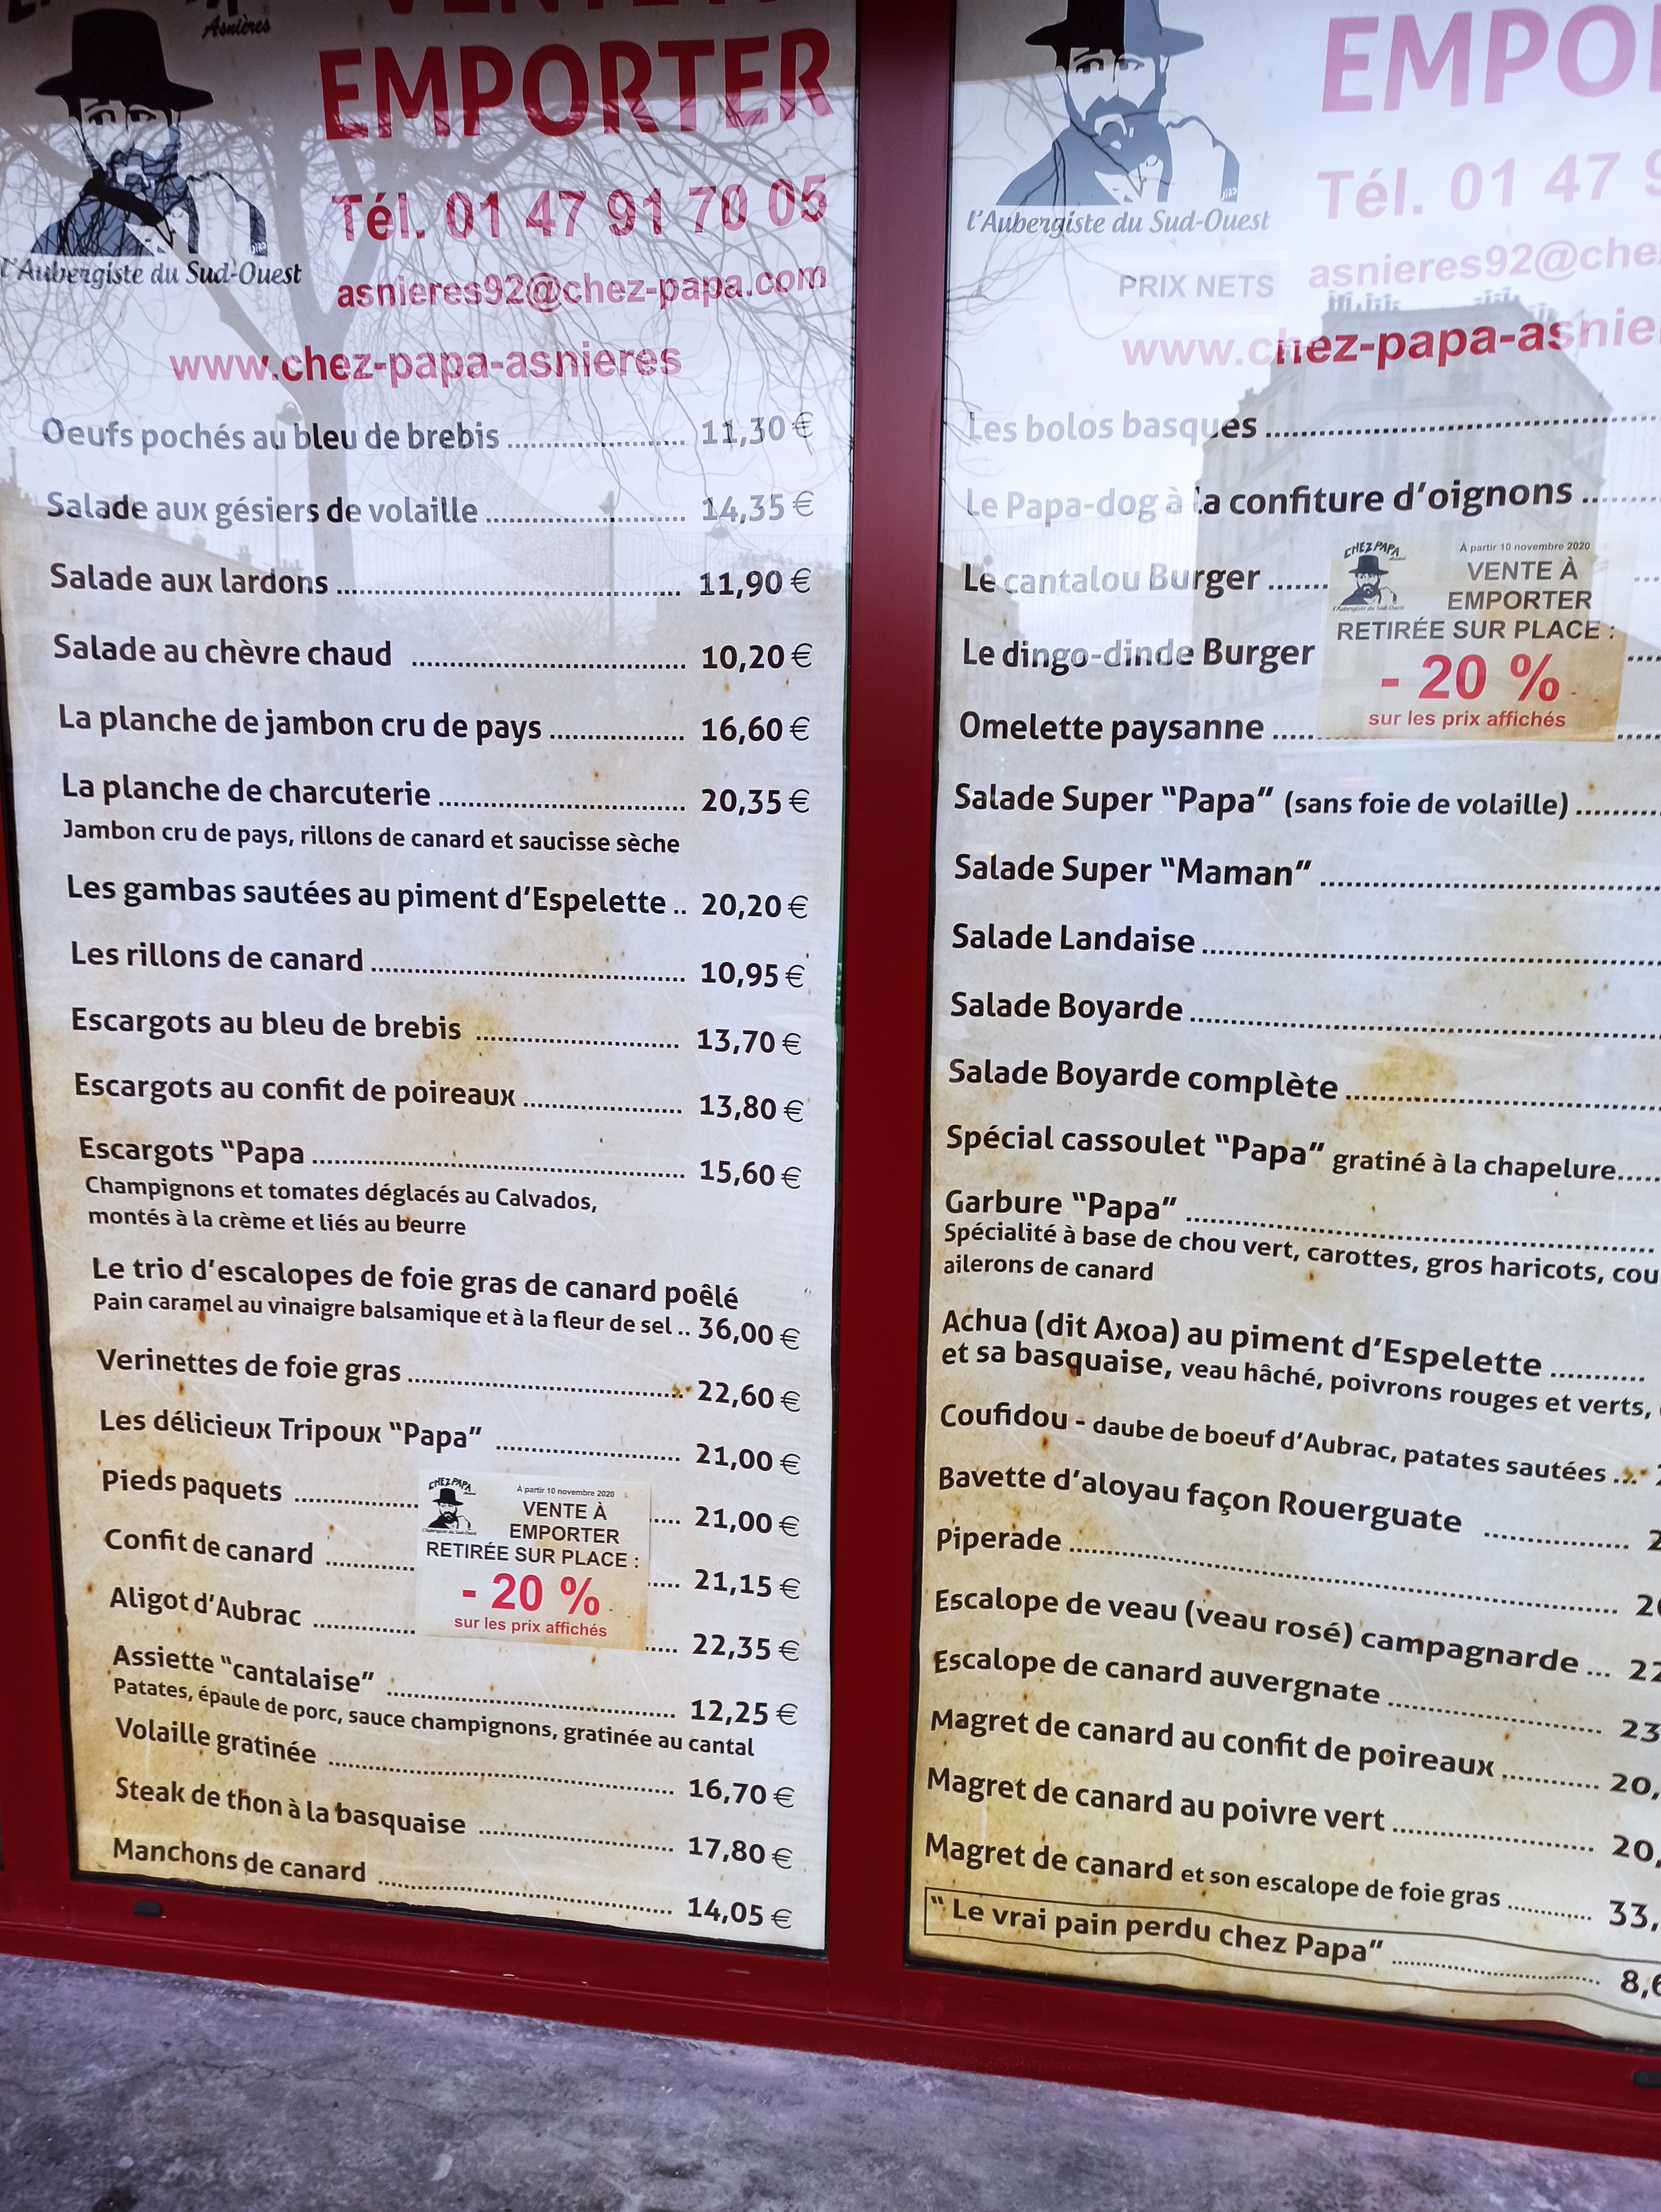 Asnières
EMPORTER
Tél. 01 47 91 70 05
l'Aubergiste du Sud-Ouest
asnieres92@chez-papa.com
www.chez-papa-asnieres
Oeufs pochés au bleu de brebis ........ 11,30 €
Salade aux gésiers de volaille ........ 14,35 €
Salade aux lardons ........ 11,90 €
Salade au chèvre chaud ........ 10,20 €
La planche de jambon cru de pays ........ 16,60 €
La planche de charcuterie ........ 20,35 €
Jambon cru de pays, rillons de canard et saucisse sèche
Les gambas sautées au piment d'Espelette .. 20,20 €
Les rillons de canard ........ 10,95 €
Escargots au bleu de brebis ........ 13,70 €
Escargots au confit de poireaux ........ 13,80 €
Escargots "Papa ........ 15,60 €
Champignons et tomates déglacés au Calvados,
montés à la crème et liés au beurre
Le trio d'escalopes de foie gras de canard poêlé
Pain caramel au vinaigre balsamique et à la fleur de sel .. 36,00 €
Verinettes de foie gras ........ 22,60 €
Les délicieux Tripoux "Papa" ........ 21,00 €
Pieds paquets ........ 21,00 €
Confit de canard ........ 21,15 €
Aligot d'Aubrac ........ 22,35 €
CHEZ PAPA
À partir 10 novembre 2020
VENTE À
EMPORTER
RETIRÉE SUR PLACE :
- 20 %
sur les prix affichés
Assiette "cantalaise" ........ 12,25 €
Patates, épaule de porc, sauce champignons, gratinée au cantal
Volaille gratinée ........ 16,70 €
Steak de thon à la basquaise ........ 17,80 €
Manchons de canard ........ 14,05 €
EMPO
Tél. 01 47 9
l'Aubergiste du Sud-Ouest
PRIX NETS
asnieres92@che
www.chez-papa-asnie
Les bolos basques ........
Le Papa-dog à la confiture d'oignons ........
Le cantalou Burger ........
Le dingo-dinde Burger
Omelette paysanne ........
CHEZ PAPA
À partir 10 novembre 2020
VENTE À
EMPORTER
RETIRÉE SUR PLACE :
- 20 %
sur les prix affichés
Salade Super "Papa" (sans foie de volaille) ........
Salade Super "Maman" ........
Salade Landaise ........
Salade Boyarde ........
Salade Boyarde complète ........
Spécial cassoulet "Papa" gratiné à la chapelure.....
Garbure "Papa" ........
Spécialité à base de chou vert, carottes, gros haricots, cou
ailerons de canard
Achua (dit Axoa) au piment d'Espelette ........
et sa basquaise, veau hâché, poivrons rouges et verts,
Coufidou - daube de boeuf d'Aubrac, patates sautées ...
Bavette d'aloyau façon Rouerguate ........ 2
Piperade ........ 20
Escalope de veau (veau rosé) campagnarde ... 22
Escalope de canard auvergnate ........ 23
Magret de canard au confit de poireaux ........ 20,
Magret de canard au poivre vert ........ 20,
Magret de canard et son escalope de foie gras ........ 33,
" Le vrai pain perdu chez Papa" ........ 8,6